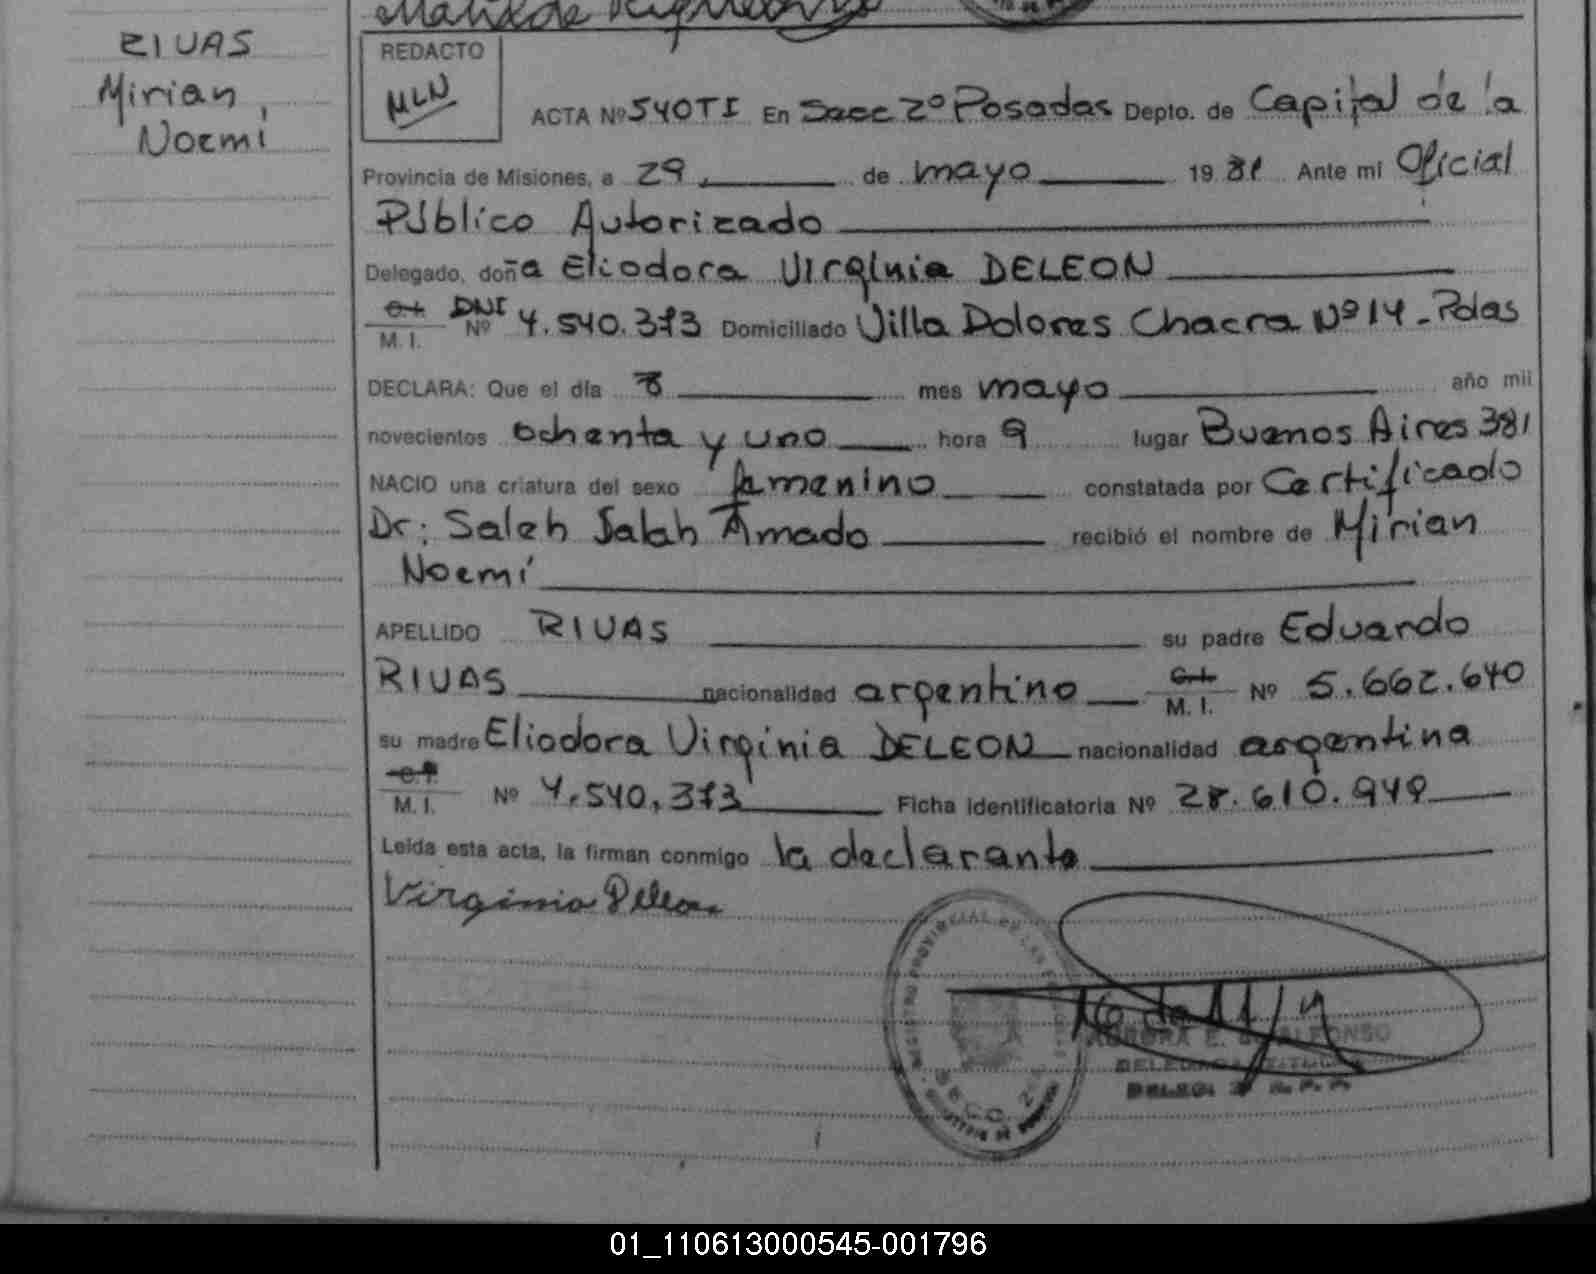 RIVAS
Mirian
Noemí
REDACTO
MLN
ACTA Nº 540TI En Secc 2º Posadas Depto. de Capital de la
Provincia de Misiones, a 29 de mayo 1981 Ante mi Oficial
Público Autorizado
Delegado, doña Eliodora Virginia DELEON
C.I. DNI
M. I. Nº 4.540.373 Domiciliado Villa Dolores Chacra Nº 14 - Pdas
DECLARA: Que el día 8 mes mayo año mil
novecientos ochenta y uno hora 9 lugar Buenos Aires 381
NACIO una criatura del sexo femenino constatada por Certificado
Dr: Saleh Salah Amado recibió el nombre de Mirian
Noemí
APELLIDO RIVAS su padre Eduardo
RIVAS nacionalidad argentino C.I. M. I. Nº 5.662.640
su madre Eliodora Virginia DELEON nacionalidad argentina
C.I.
M. I. Nº 4.540.373 Ficha Identificatoria Nº 28.610.949
Leída esta acta, la firman conmigo la declarante
Virginia Deleon
REGISTRO PROVINCIAL DE LAS PERSONAS
SECC. 2
AURORA E. ALFONSO
DELEGADA TITULAR
01_110613000545-001796